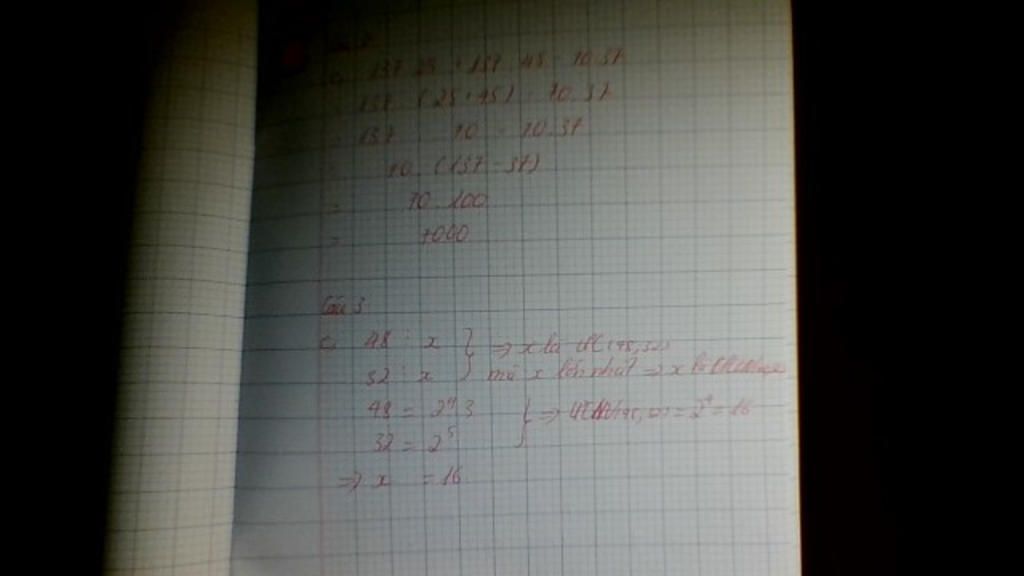 Câu 2
c, 137.25 + 137.45 - 70.37
= 137.(25+45) - 70.37
= 137 . 70 - 70.37
= 70.(137-37)
= 70.100
= 7000
Câu 3
c, 48 ⋮ x } => x là ƯC(48,32)
32 ⋮ x } mà x lớn nhất => x là
48 = 2^4.3 } => ƯCLN(48,32) = 2^4 = 16
32 = 2^5
=> x = 16